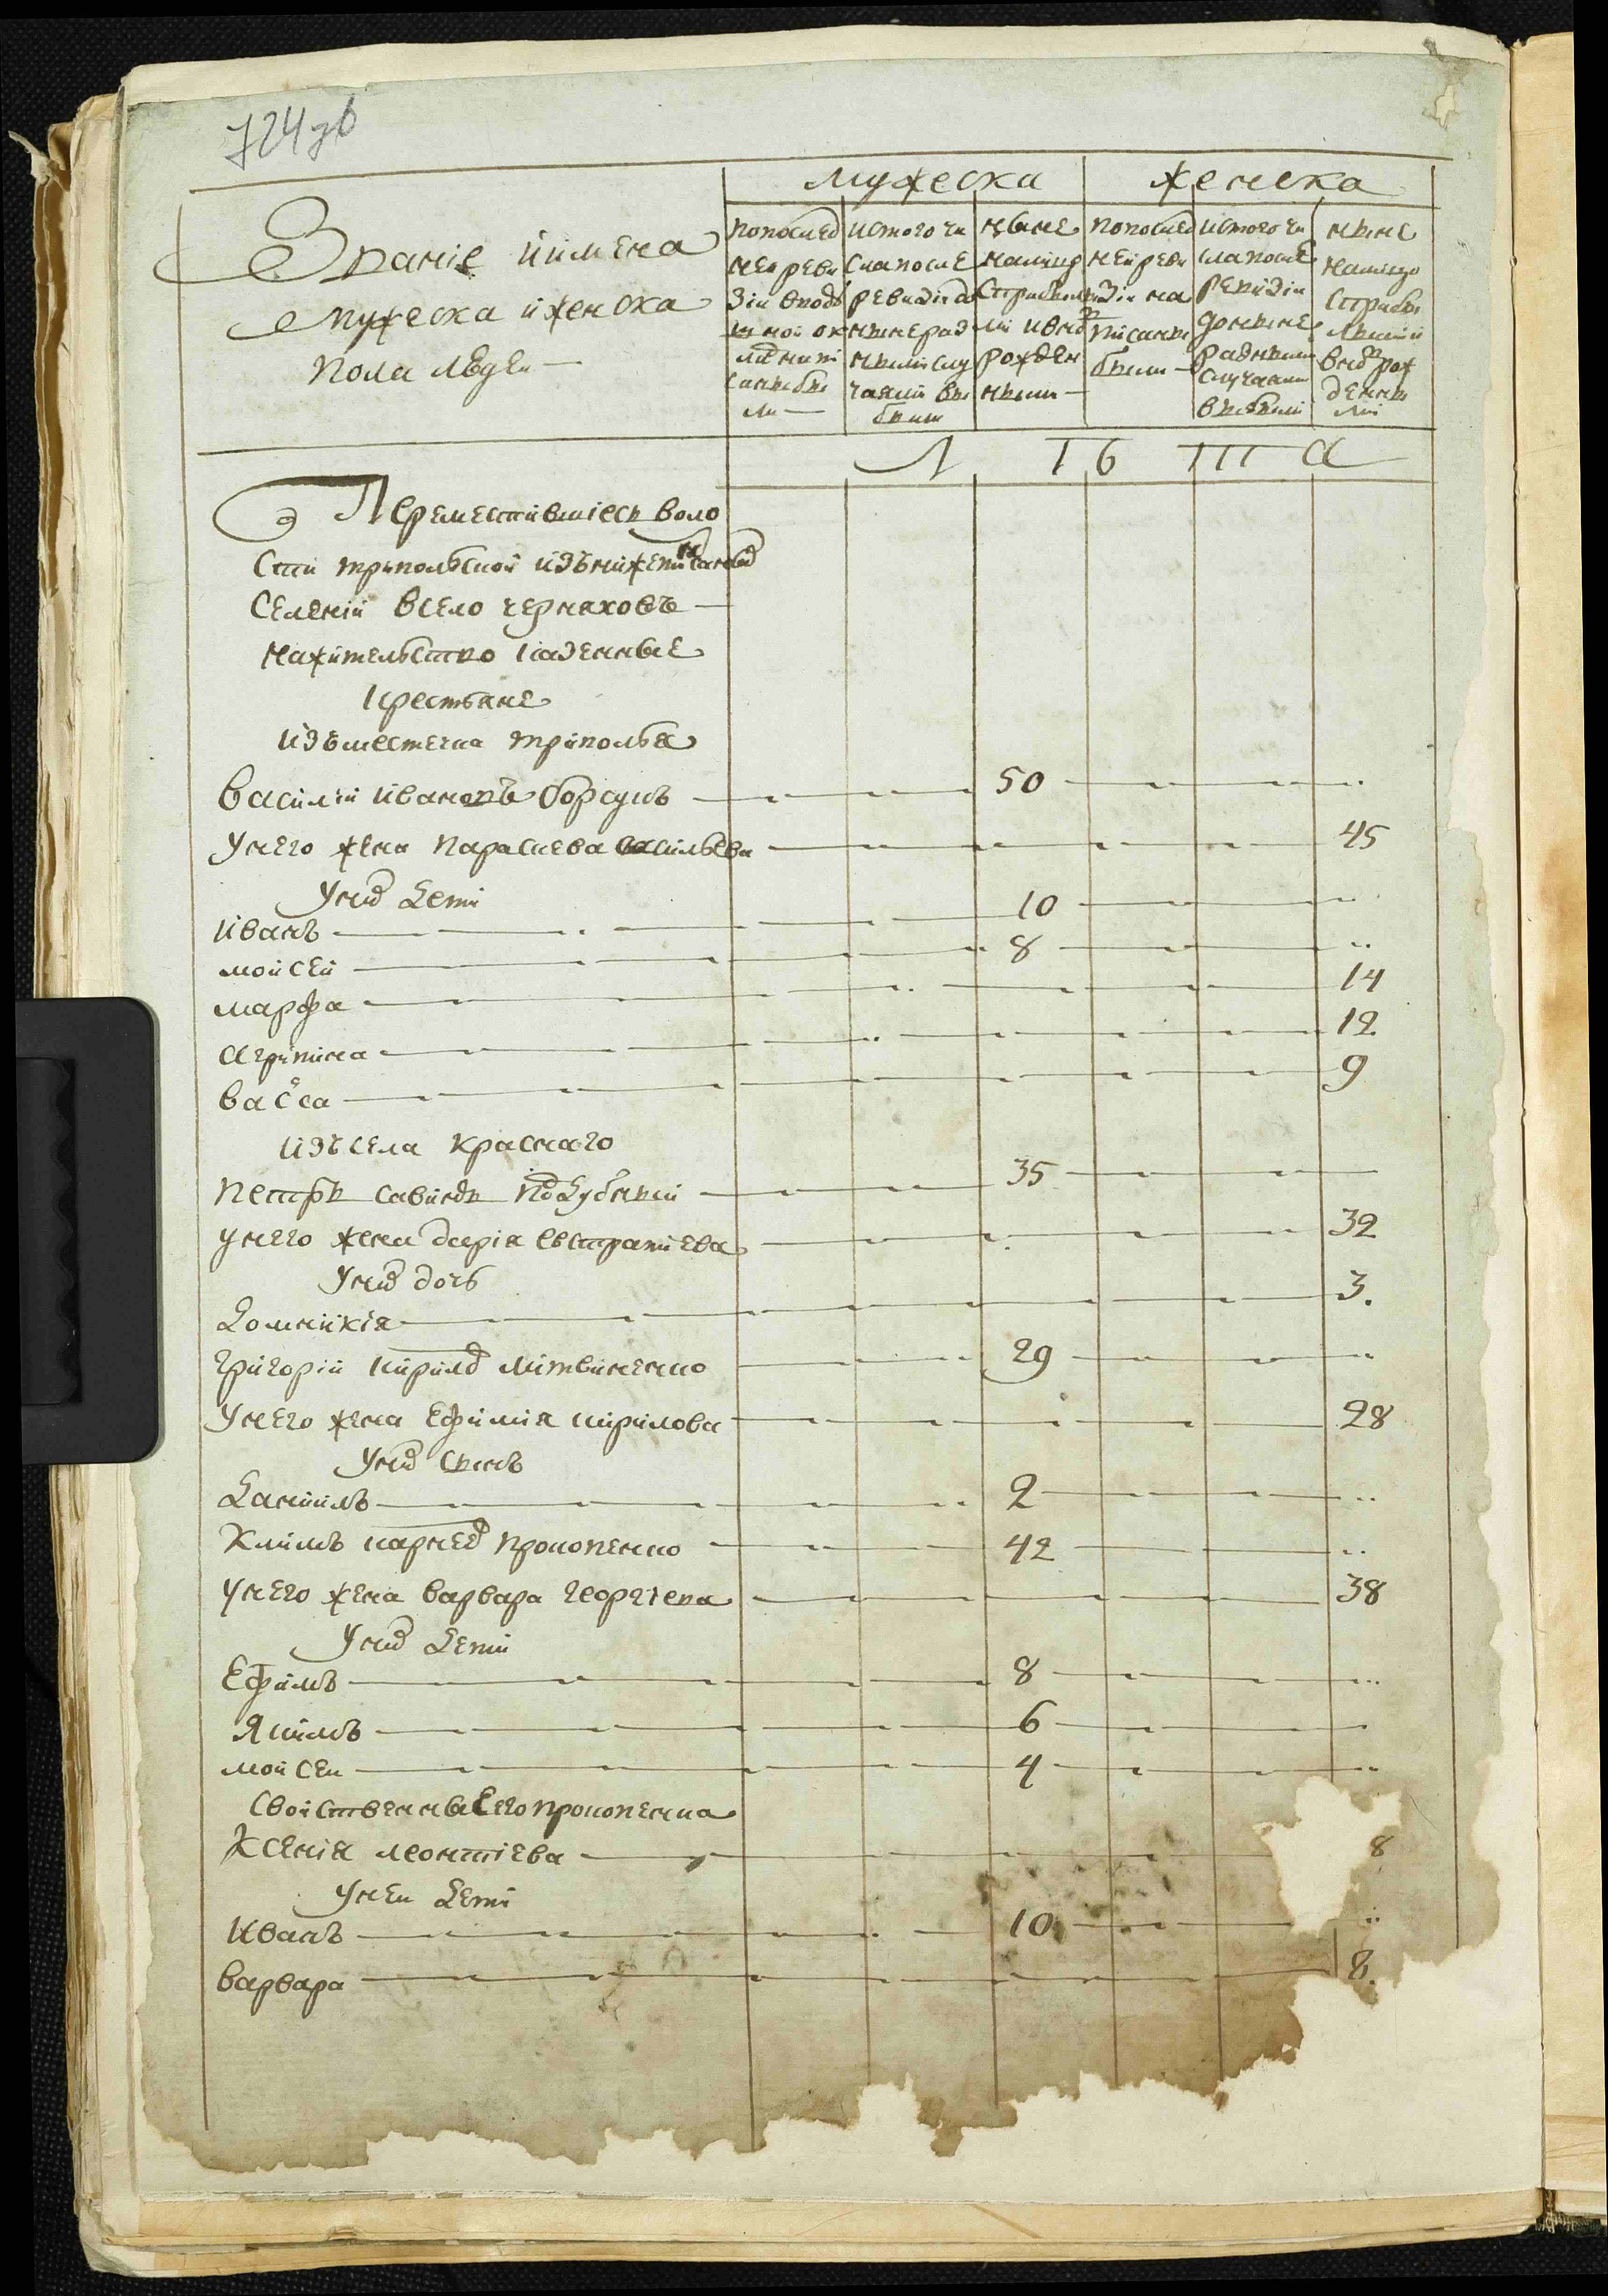 724 зв
мужеска женска
Званіе и имена
мужеска и женска
пола людеи
попослед
неи реви
зіи вподу
шной ок
ладнапи
саныбы
ли
истого чи
сла после
ревизіи до
ныне раз
ными слу
чаями вы
были
ныне
налицо
спрыбылы
ми ивнов
рожден
ными
попослед
ней реви
зіи на
писаны
были
истого чи
сла после
ревизіи
доныне
разными
случаями
выбыли
ныне
налицо
спрыбы
лыми и
внов рож
денны
ми
Л Е Т А
Переместившіеся воло
сти трипольской изъ нижеписаных
селеній всело черняховъ
нажительство казенные
крестьяне
Изъ местечка триполья
Василій Ивановъ борсукъ 50
Унего жена параскева васильева 45
Уних дети
Иванъ 10
мойсей 8
марфа 14
агрипина 12
васса 9
Изъ села Краснаго
Петръ Савинъ Поддубный 35
унего жена дарія евстратиева 32
Уних дочь
Домникія 3.
григорій кирилов литвиненко 29
Унего жена ефимія кирилова 28
Уних сынъ
Даніилъ 2
Климъ карнеев прокопенко 42
Унего жена варвара георгіева 38
Уних дети
Ефимъ 8
Якимъ 6
мойсеи 4
Свойственныя Его прокопенка
Ксенія леонтіева 8
Унеи дети
Иванъ 10
варвара 8.